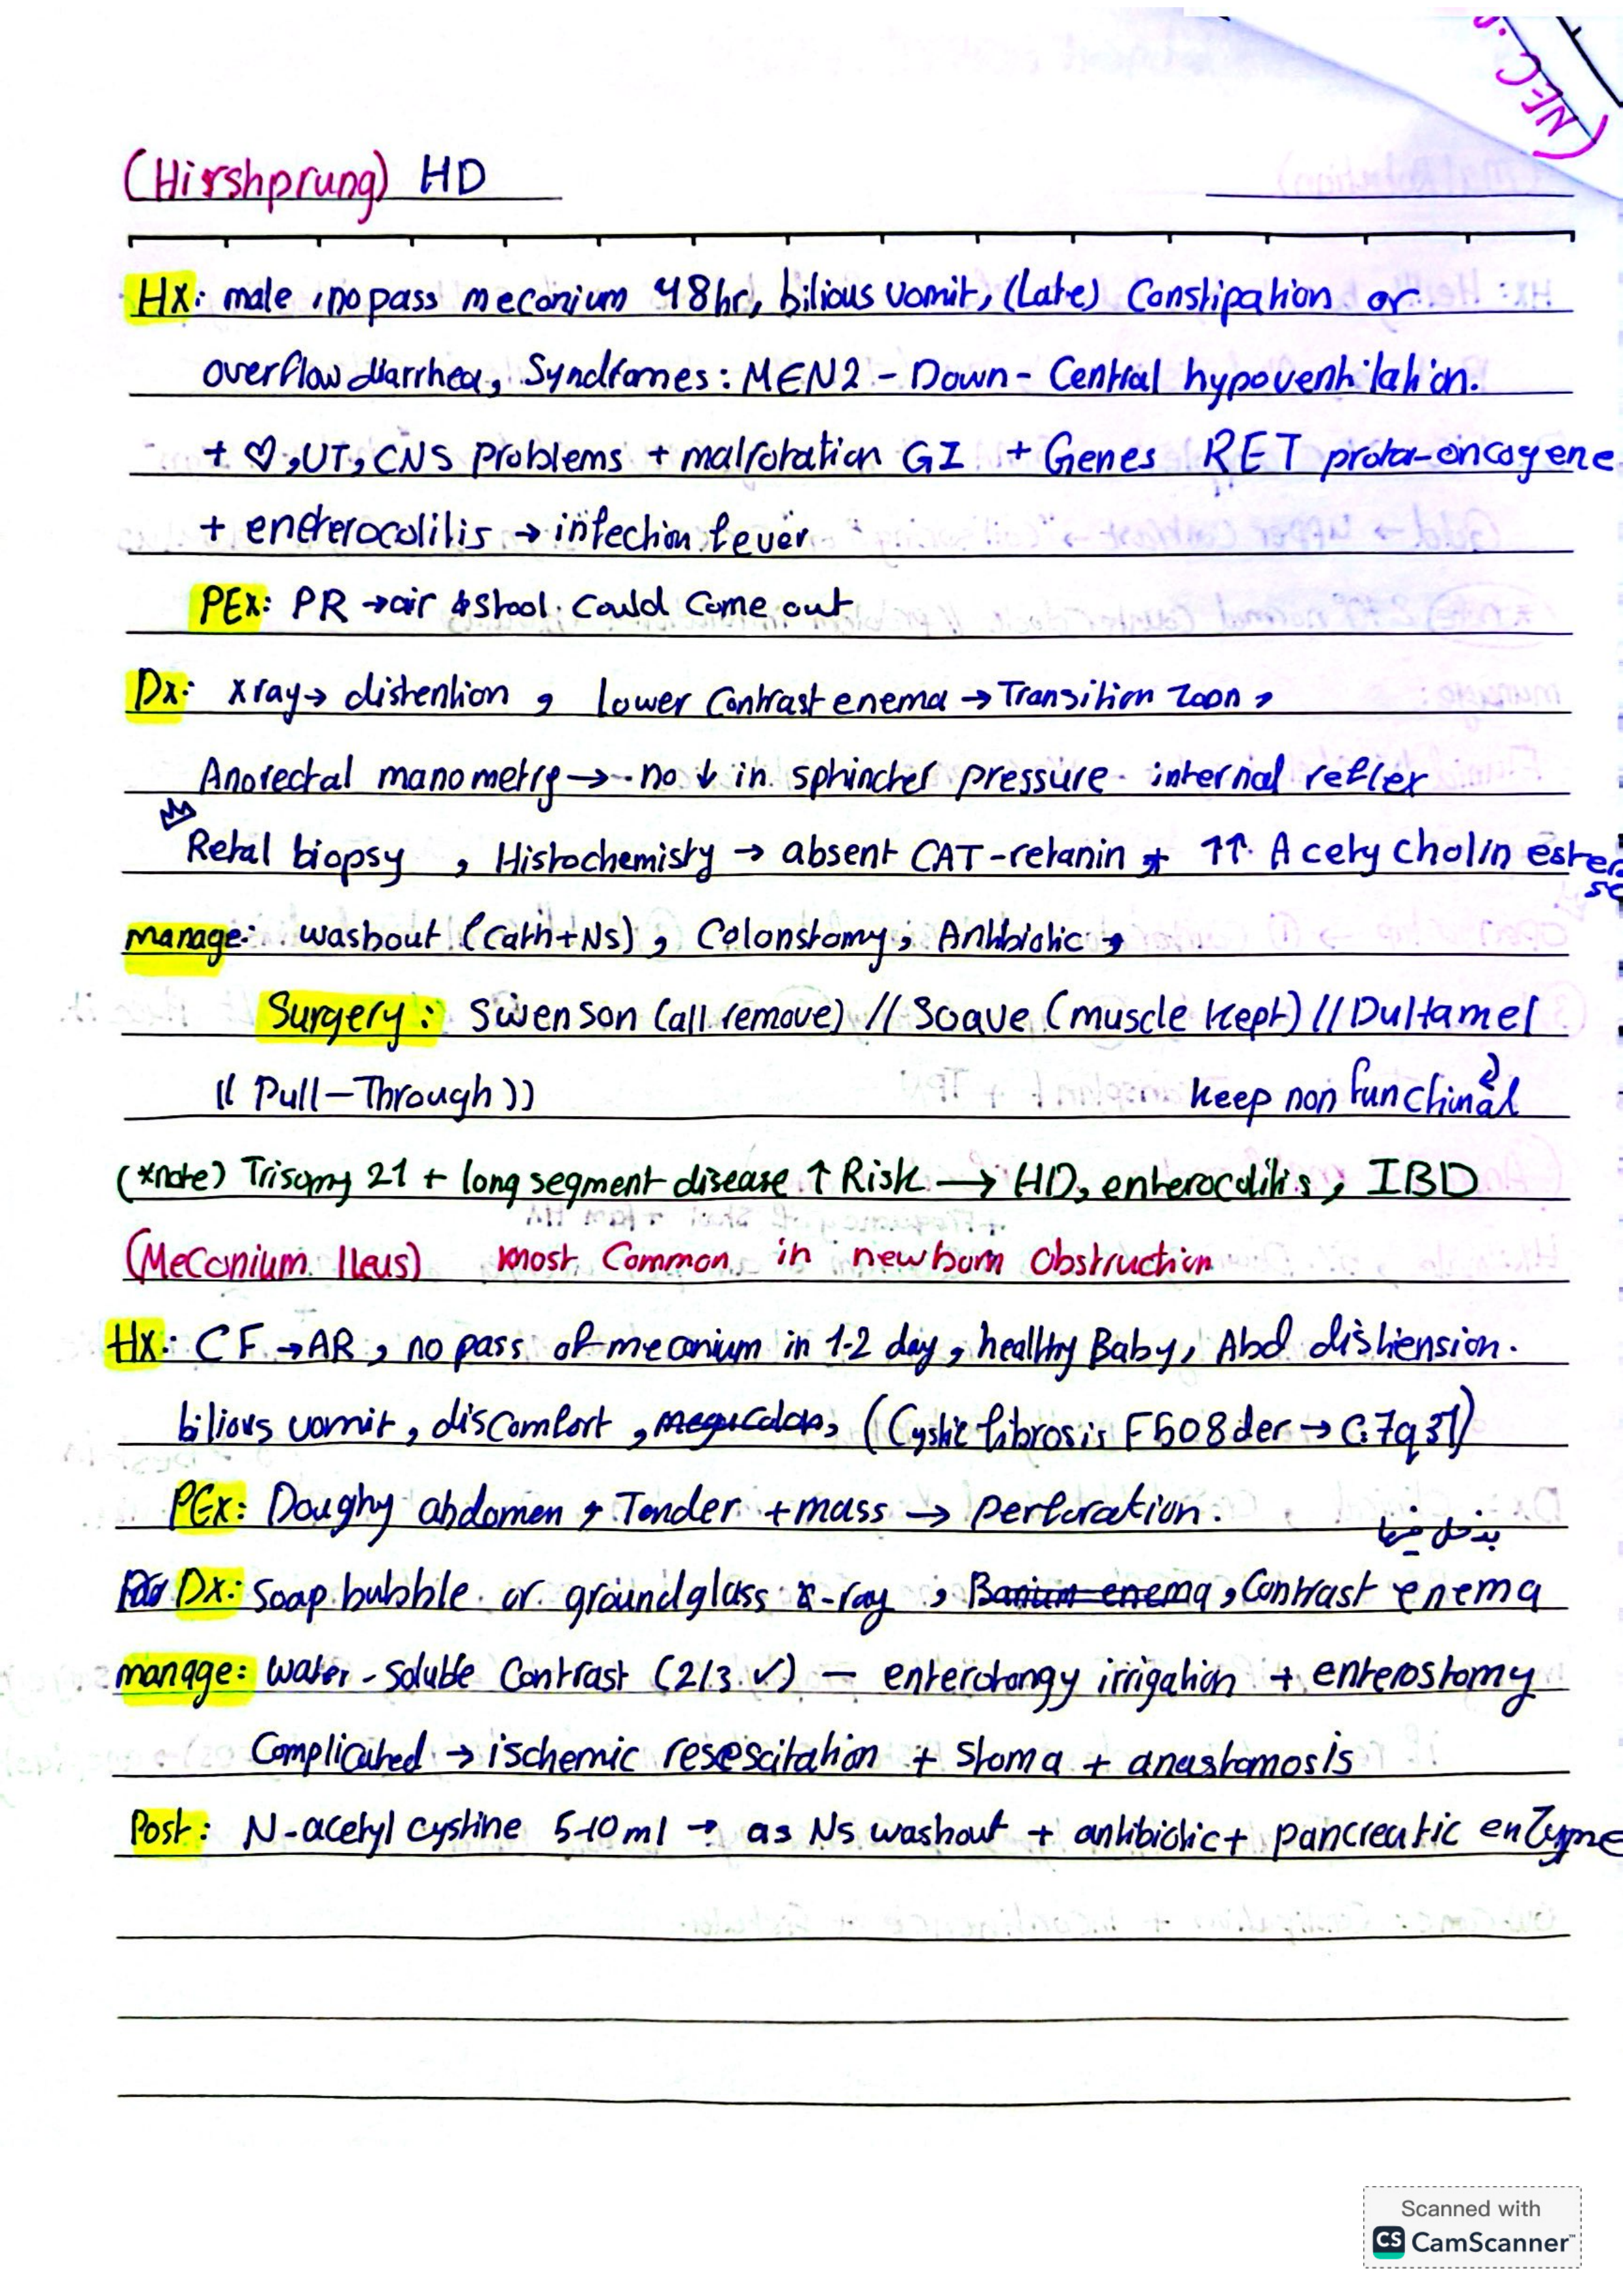 (NEC
(Hirshprung) HD
Hx: male, no pass meconium 48hr, bilious vomit, (Late) Constipation or
overflow diarrhea, Syndromes: MEN2 - Down - Central hypoventilation.
+ ♡, UT, CNS problems + malrotation GI + Genes RET proto-oncogene
+ eneterocolitis → infection fever
PEx: PR → air & stool could come out
Dx: xray → distention, lower Contrast enema → Transition zoon,
Anorectal manometry → no ↓ in sphincter pressure internal reflex
Retal biopsy, Histochemisty → absent CAT-retanin + ↑↑ Acety cholin esterase
manage: washout (Cath+Ns), Colonstomy, Antibiotic,
Surgery: Swenson (all remove) // Soave (muscle kept) // Duhamel
(( Pull-Through )) keep non functional
(*note) Trisomy 21 + long segment disease ↑ Risk → HD, enterocolitis, IBD
(Meconium Ileus) most Common in newborn Obstruction
Hx: CF → AR, no pass of meconium in 1-2 day, healthy Baby, Abd distiension.
bilious vomit, discomfort, (Cystic fibrosis F508der → C:7q31)
PEx: Doughy abdomen, Tender + mass → perforation.
Dx: Soap bubble or groundglass x-ray, Barium enema, Contrast enema
manage: water-soluble Contrast (2/3 ✓) - irrigation + enterostomy
Complicated → ischemic resescitation + stoma + anastomosis
Post: N-acetyl cystine 5-10ml → as Ns washout + antibiotic + pancreatic enzyme
Scanned with
CS CamScanner™